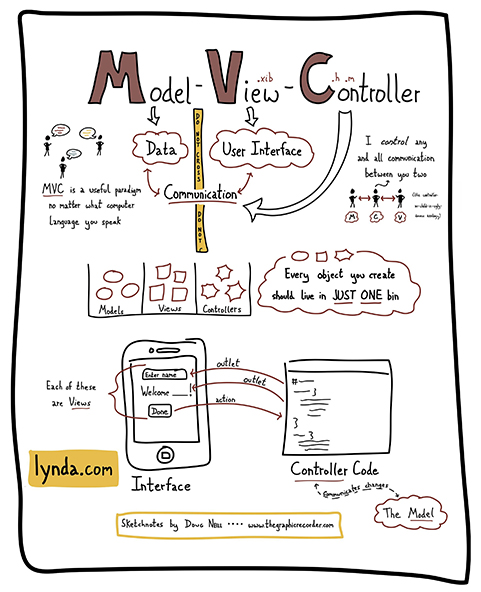 .xib
.h .m
Model-View-Controller
DO NOT CROSS
DO NOT
Data
User Interface
Communication
MVC is a useful paradigm
no matter what computer
language you speak
I control any
and all communication
between you two
M C V
Models
Views
Controllers
Every object you create
should live in JUST ONE bin
Each of these
are Views
Enter name
Welcome ___!
Done
outlet
outlet
action
#
}
}
}
Interface
Controller Code
communicates changes
The Model
lynda.com
Sketchnotes by Doug Neill .... www.thegraphicrecorder.com